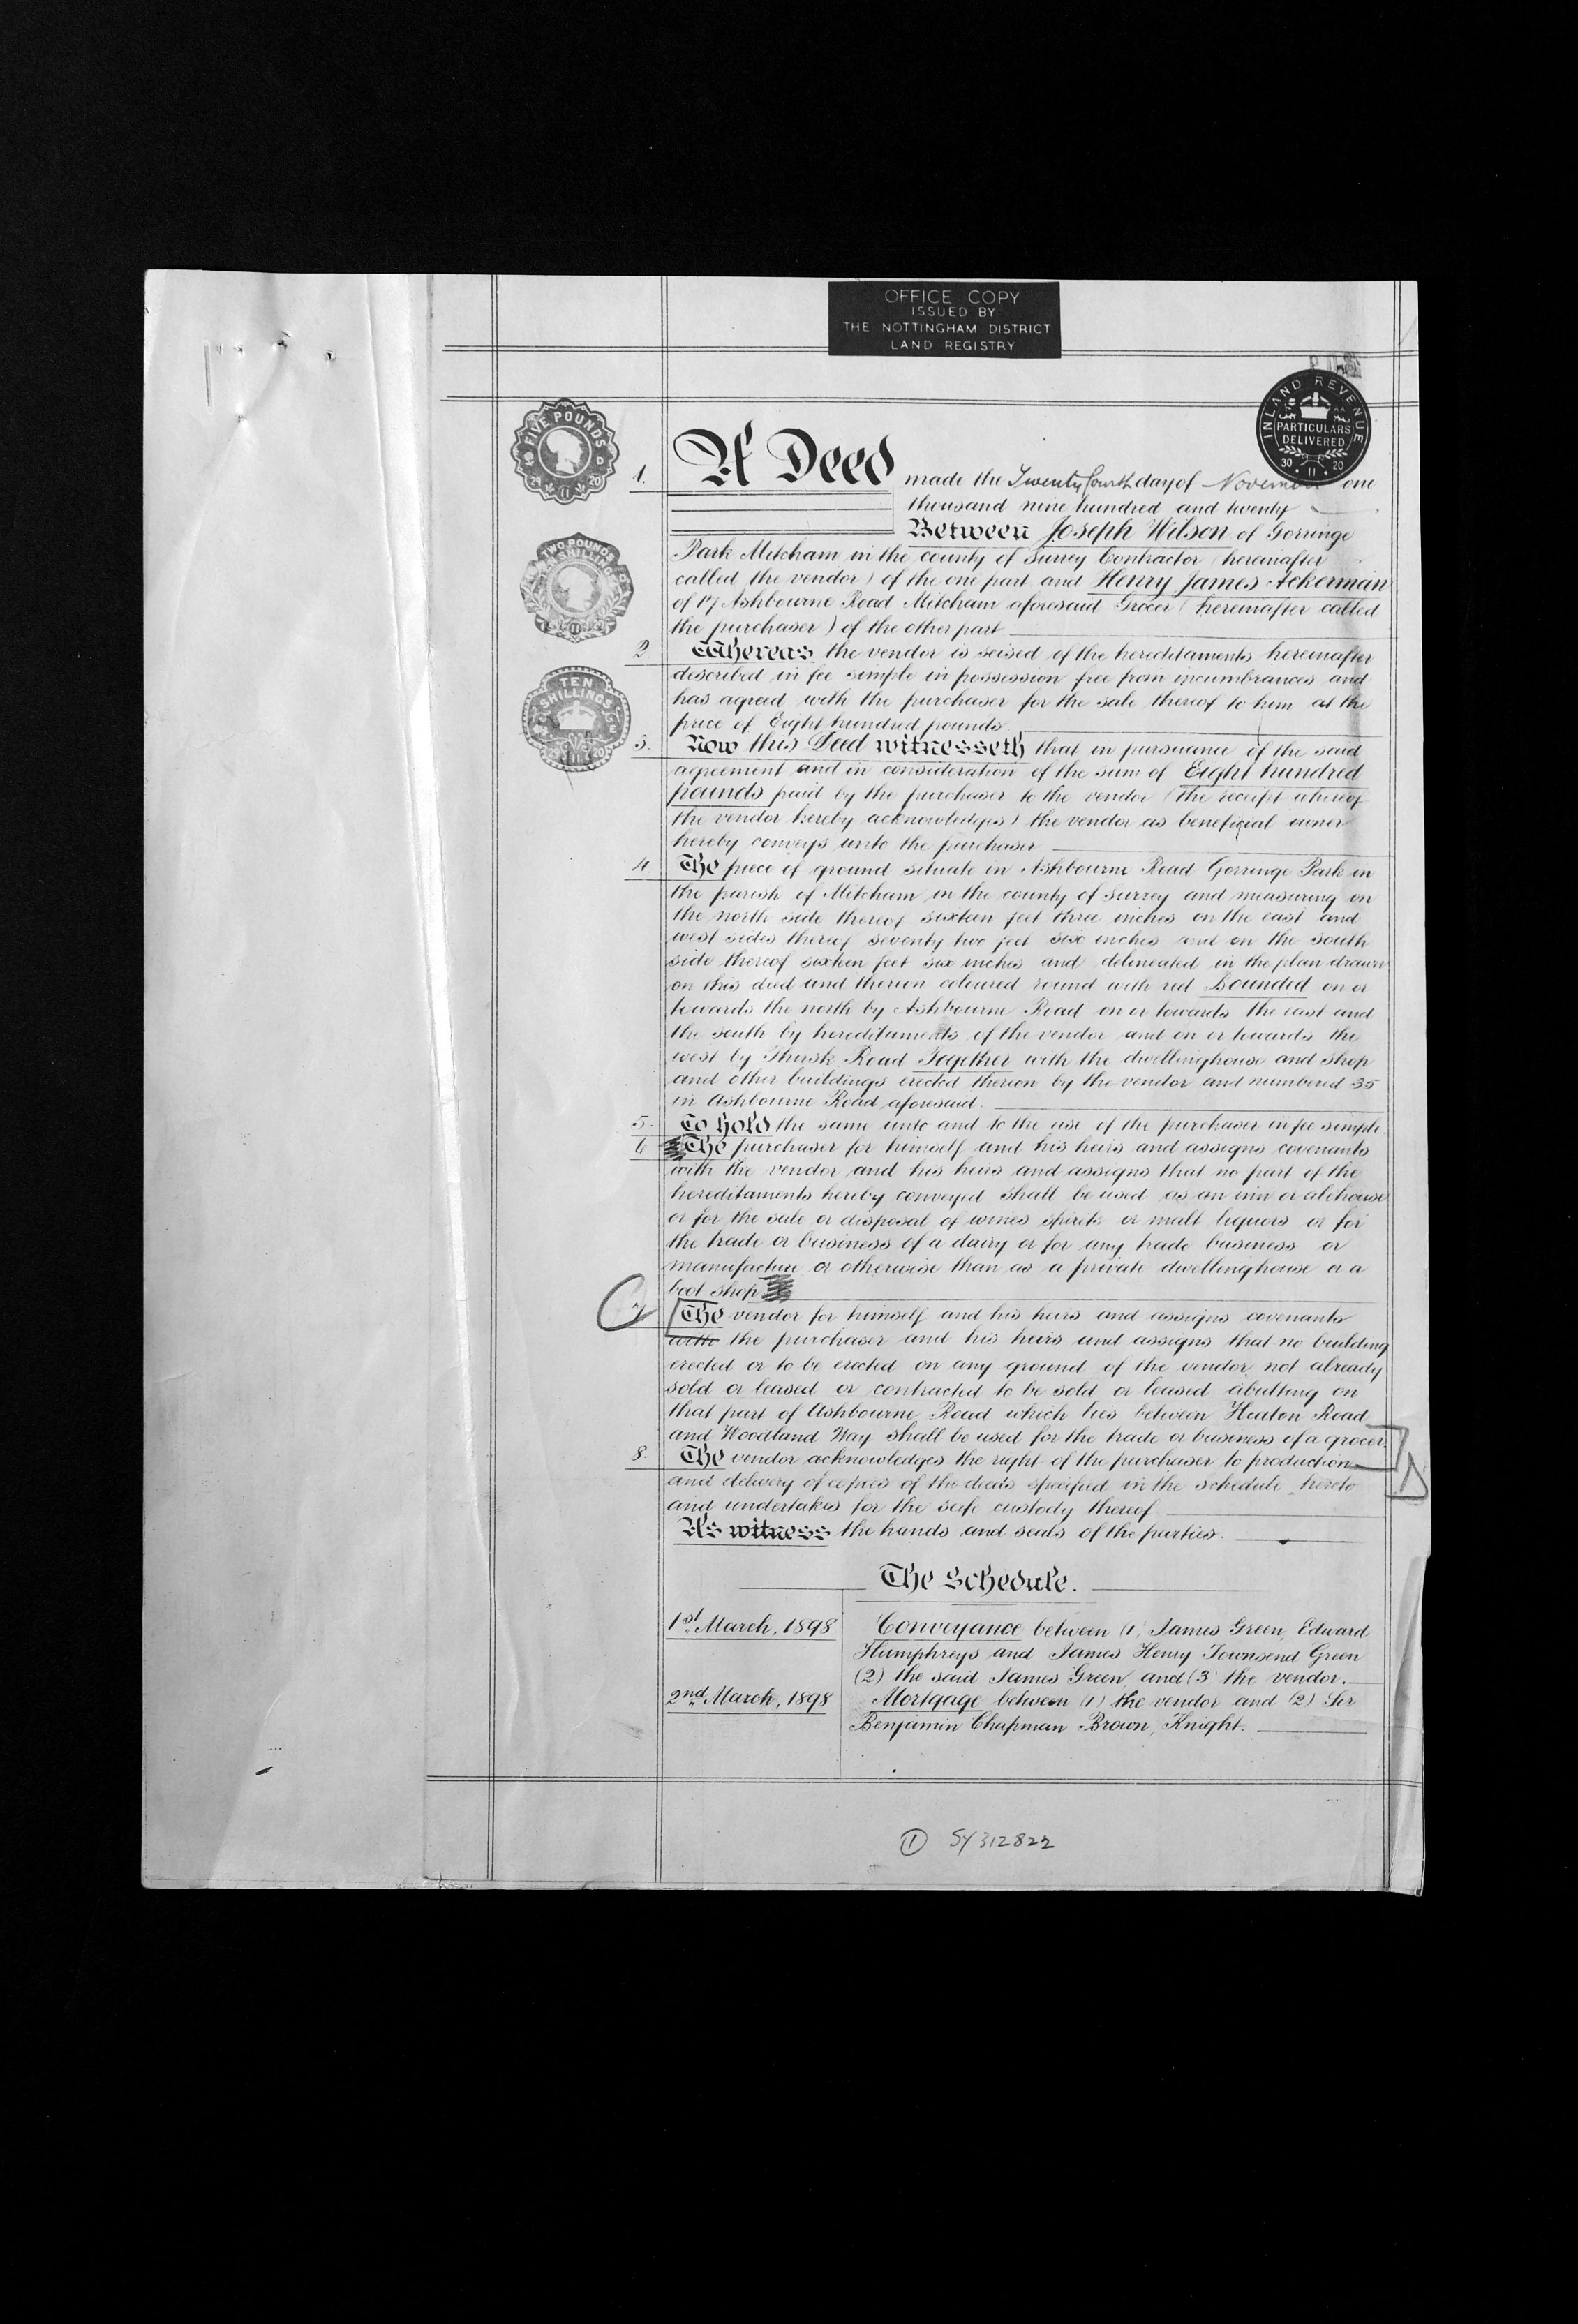 OFFICE COPY
ISSUED BY
THE NOTTINGHAM DISTRICT
LAND REGISTRY
INLAND REVENUE
PARTICULARS
DELIVERED
30 11 20
FIVE POUNDS
29 11 20
TWO POUNDS
TEN SHILLINGS
TEN
SHILLINGS
1. A Deed made the Twenty fourth day of November one
thousand nine hundred and twenty
Between Joseph Wilson of Gorringe
Park Mitcham in the county of Surrey Contractor (hereinafter
called the vendor) of the one part and Henry James Ackerman
of 17 Ashbourne Road Mitcham aforesaid Grocer (hereinafter called
the purchaser) of the other part
2 Whereas the vendor is seised of the hereditaments hereinafter
described in fee simple in possession free from incumbrances and
has agreed with the purchaser for the sale thereof to him at the
price of Eight hundred pounds
3. Now this Deed witnesseth that in pursuance of the said
agreement and in consideration of the sum of Eight hundred
pounds paid by the purchaser to the vendor (the receipt whereof
the vendor hereby acknowledges) the vendor as beneficial owner
hereby conveys unto the purchaser
4 The piece of ground situate in Ashbourne Road Gorringe Park in
the parish of Mitcham in the county of Surrey and measuring on
the north side thereof sixteen feet three inches on the east and
west sides thereof seventy two feet six inches and on the south
side thereof sixteen feet six inches and delineated in the plan drawn
on this deed and thereon coloured round with red Bounded on or
towards the north by Ashbourne Road on or towards the east and
the south by hereditaments of the vendor and on or towards the
west by Thirsk Road Together with the dwellinghouse and shop
and other buildings erected thereon by the vendor and numbered 35
in Ashbourne Road aforesaid.
5. To hold the same unto and to the use of the purchaser in fee simple.
6 The purchaser for himself and his heirs and assigns covenants
with the vendor and his heirs and assigns that no part of the
hereditaments hereby conveyed shall be used as an inn or alehouse
or for the sale or disposal of wines spirits or malt liquors or for
the trade or business of a dairy or for any trade business or
manufacture or otherwise than as a private dwellinghouse or a
boot shop
7 The vendor for himself and his heirs and assigns covenants
with the purchaser and his heirs and assigns that no building
erected or to be erected on any ground of the vendor not already
sold or leased or contracted to be sold or leased abutting on
that part of Ashbourne Road which lies between Heaton Road
and Woodland Way shall be used for the trade or business of a grocer.
8. The vendor acknowledges the right of the purchaser to production
and delivery of copies of the deeds specified in the schedule hereto
and undertakes for the safe custody thereof
As witness the hands and seals of the parties.
The Schedule.
1st March, 1898. Conveyance between (1) James Green, Edward
Humphreys and James Henry Townsend Green
(2) the said James Green and (3) the vendor.
2nd March, 1898 Mortgage between (1) the vendor and (2) Sir
Benjamin Chapman Brown, Knight.
① SY312822